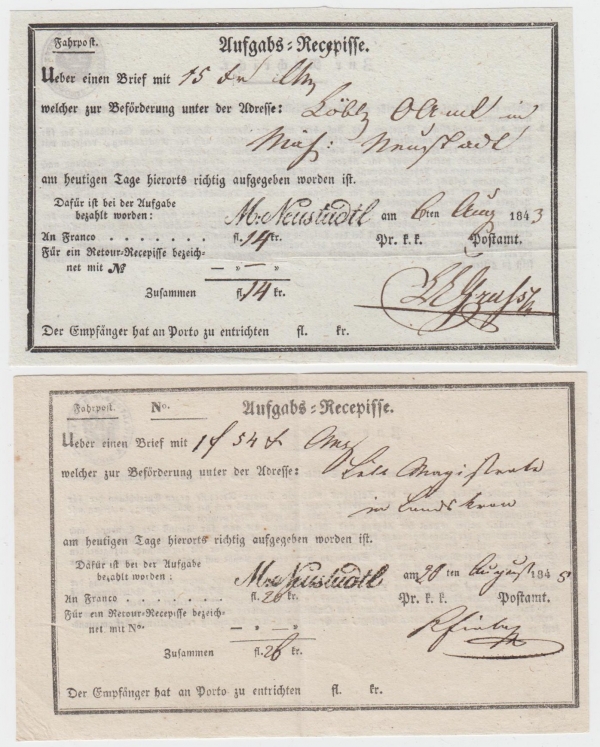 Fahrpost.
Aufgabs-Recepisse.
Ueber einen Brief mit 15
welcher zur Beförderung unter der Adresse: Löbl: in
Mäh: Neustadtl
am heutigen Tage hierorts richtig aufgegeben worden ist.
Dafür ist bei der Aufgabe
bezahlt worden: M: Neustadtl am 6ten Aug 1843
An Franco . . . . . . . fl. 14 kr. Pr. k. k. Postamt.
Für ein Retour-Recepisse bezeich-
net mit № — „ — „
Zusammen fl. 14 kr.
Der Empfänger hat an Porto zu entrichten fl. kr.
Fahrpost. No. Aufgabs-Recepisse.
Ueber einen Brief mit 1 f 54
welcher zur Beförderung unter der Adresse: Löbl: Magistrate
in Landskron
am heutigen Tage hierorts richtig aufgegeben worden ist.
Dafür ist bei der Aufgabe
bezahlt worden: M: Neustadtl am 20 ten August 184
An Franco . . . . . . . fl. 26 kr. Pr. k. k. Postamt.
Für ein Retour-Recepisse bezeich-
net mit No. — „ — „
Zusammen fl. 26 kr.
Der Empfänger hat an Porto zu entrichten fl. kr.